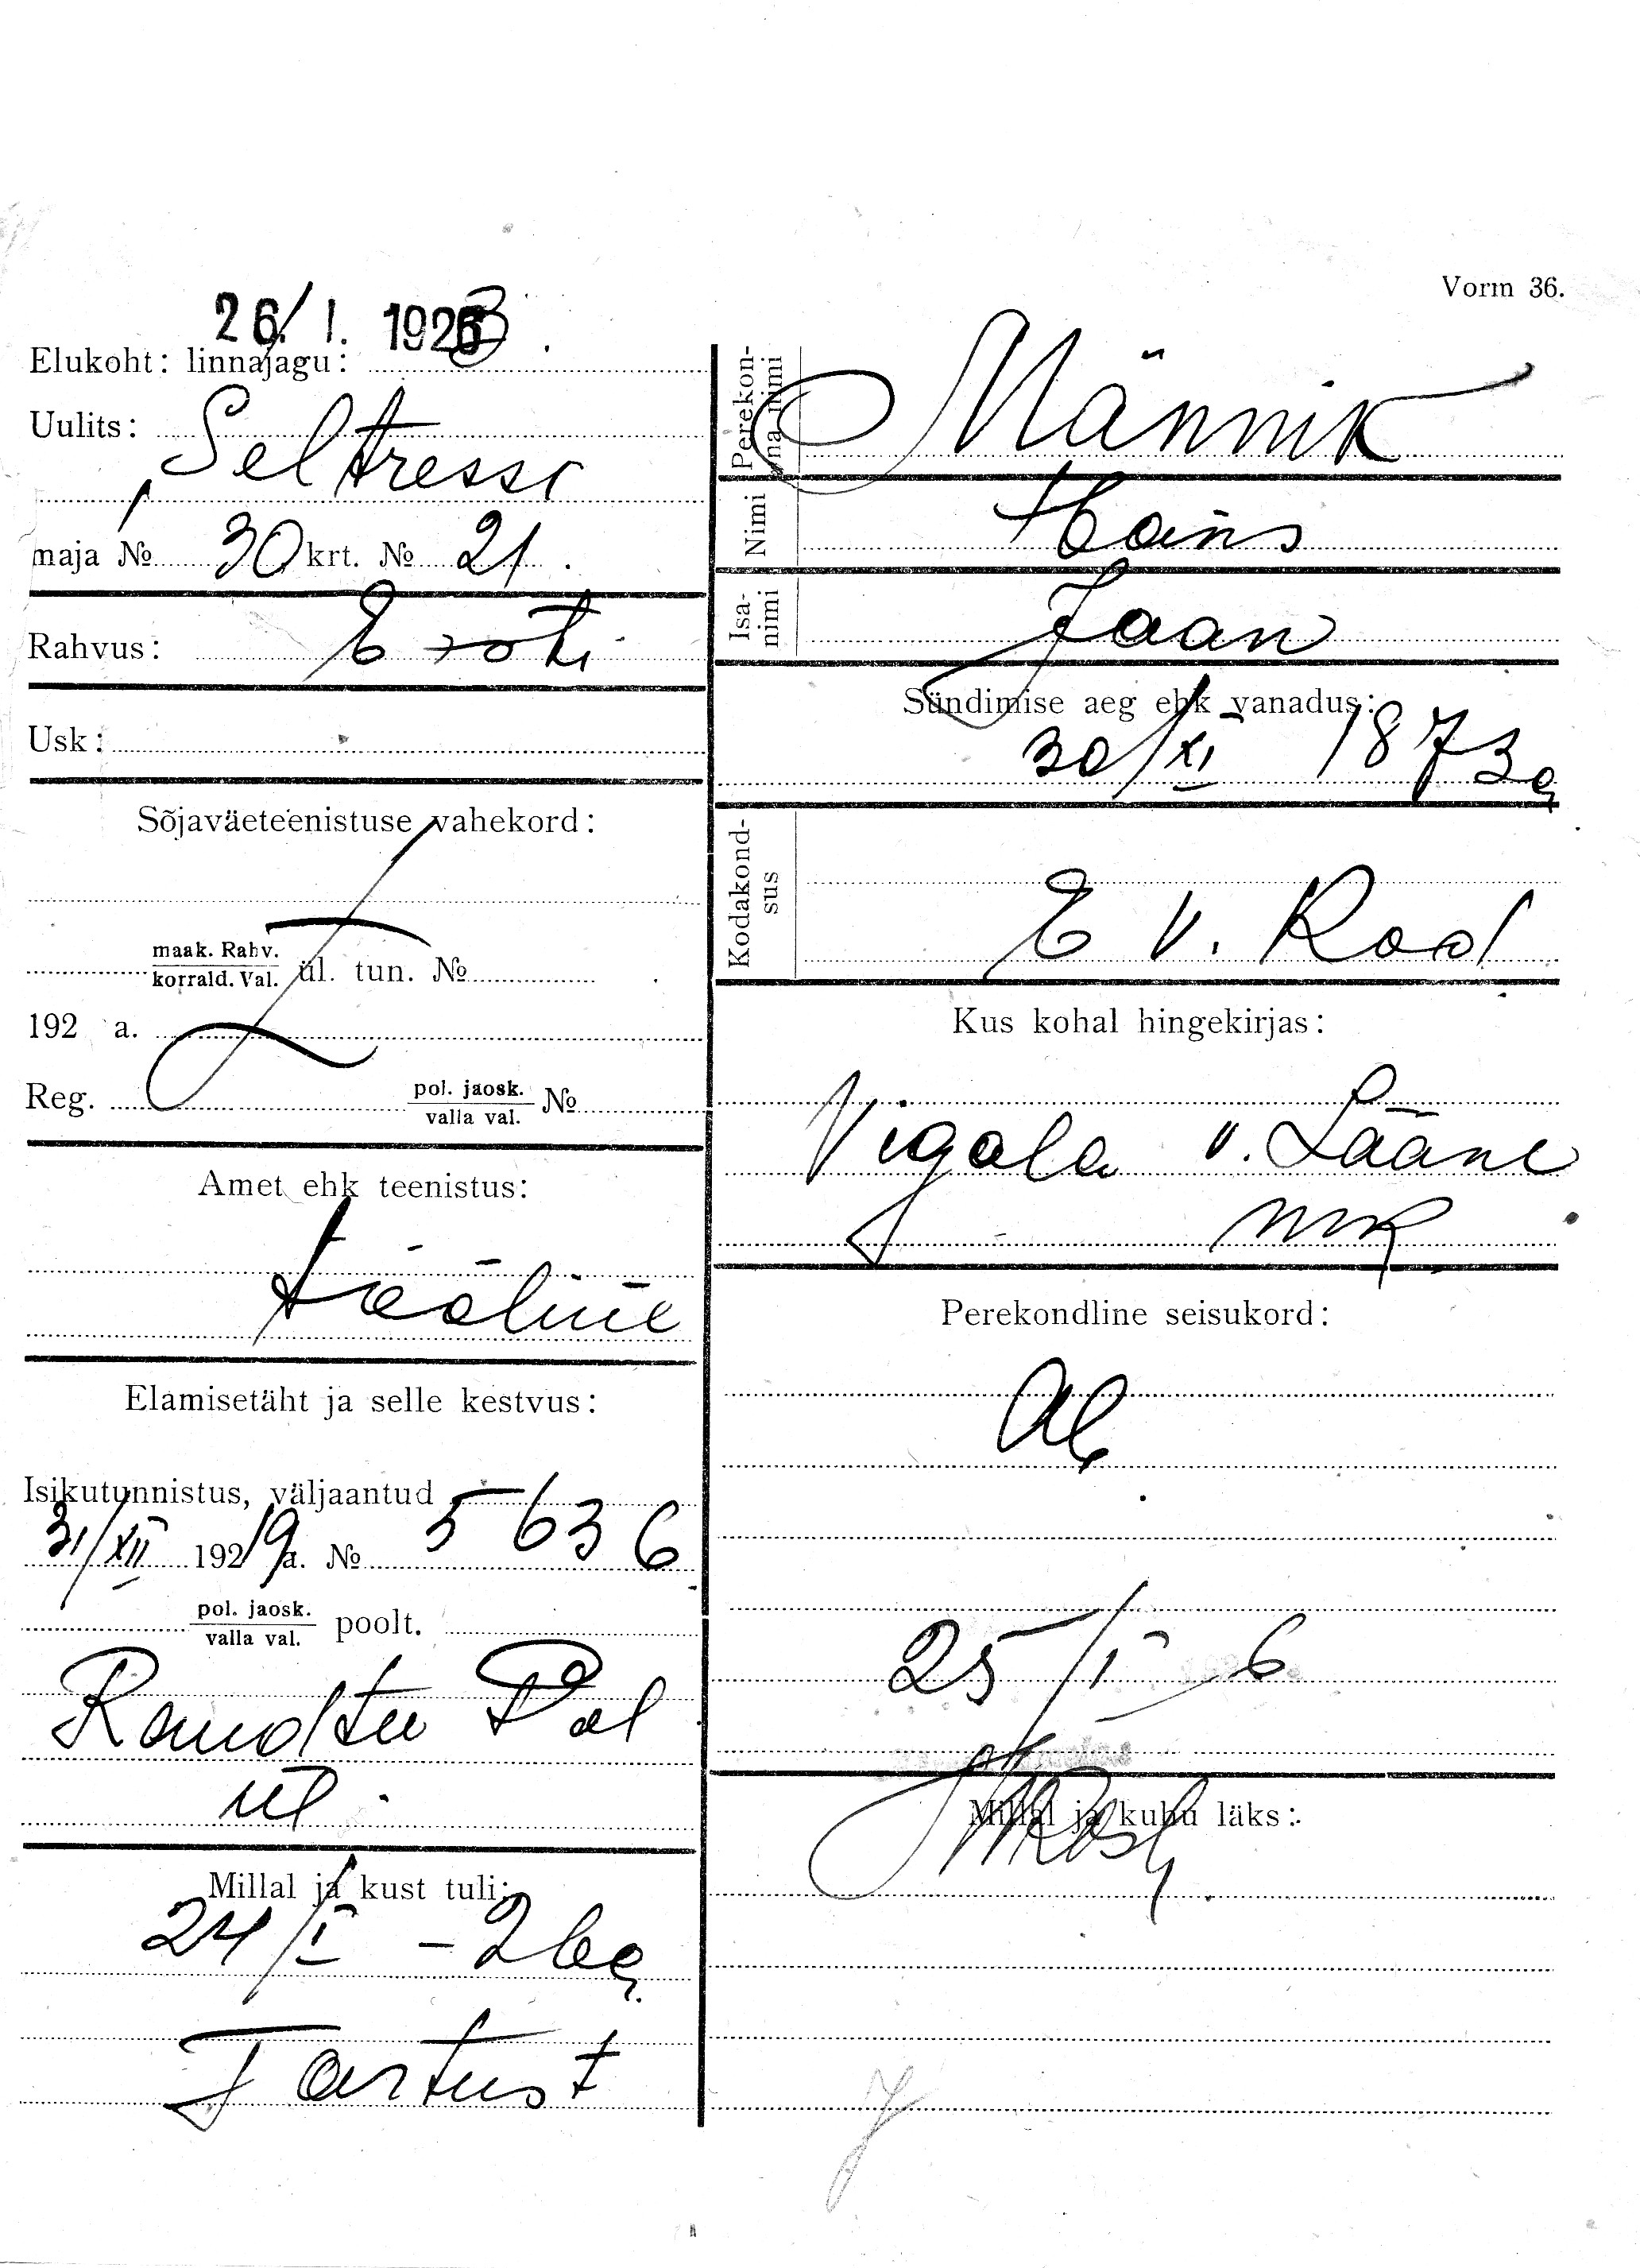 Vorm 36.
26/I. 1926
Elukoht: linnajagu: 3
Uulits: Seltressi
maja № 30 krt. № 21.
Rahvus: Eesti
Usk:
Sõjaväeteenistuse vahekord:
maak. Rahv.
korrald. Val. ül. tun. №
192 a.
Reg. pol. jaosk.
valla val. №
Amet ehk teenistus:
tööline
Elamisetäht ja selle kestvus:
Isikutunnistus, väljaantud
31/XII 1919 a. № 5636
pol. jaosk.
valla val. poolt.
Raudtee Pol
ül.
Millal ja kust tuli:
24/I - 26 a.
Tartust
Perekon-
na nimi Männik
Nimi Hans
Isa-
nimi Jaan
Sündimise aeg ehk vanadus:
30/XI 1873 a
Kodakond-
sus E V. Kod
Kus kohal hingekirjas:
Vigala v. Lääne
mk
Perekondline seisukord:
Ab
25/I 6
Millal ja kuhu läks: